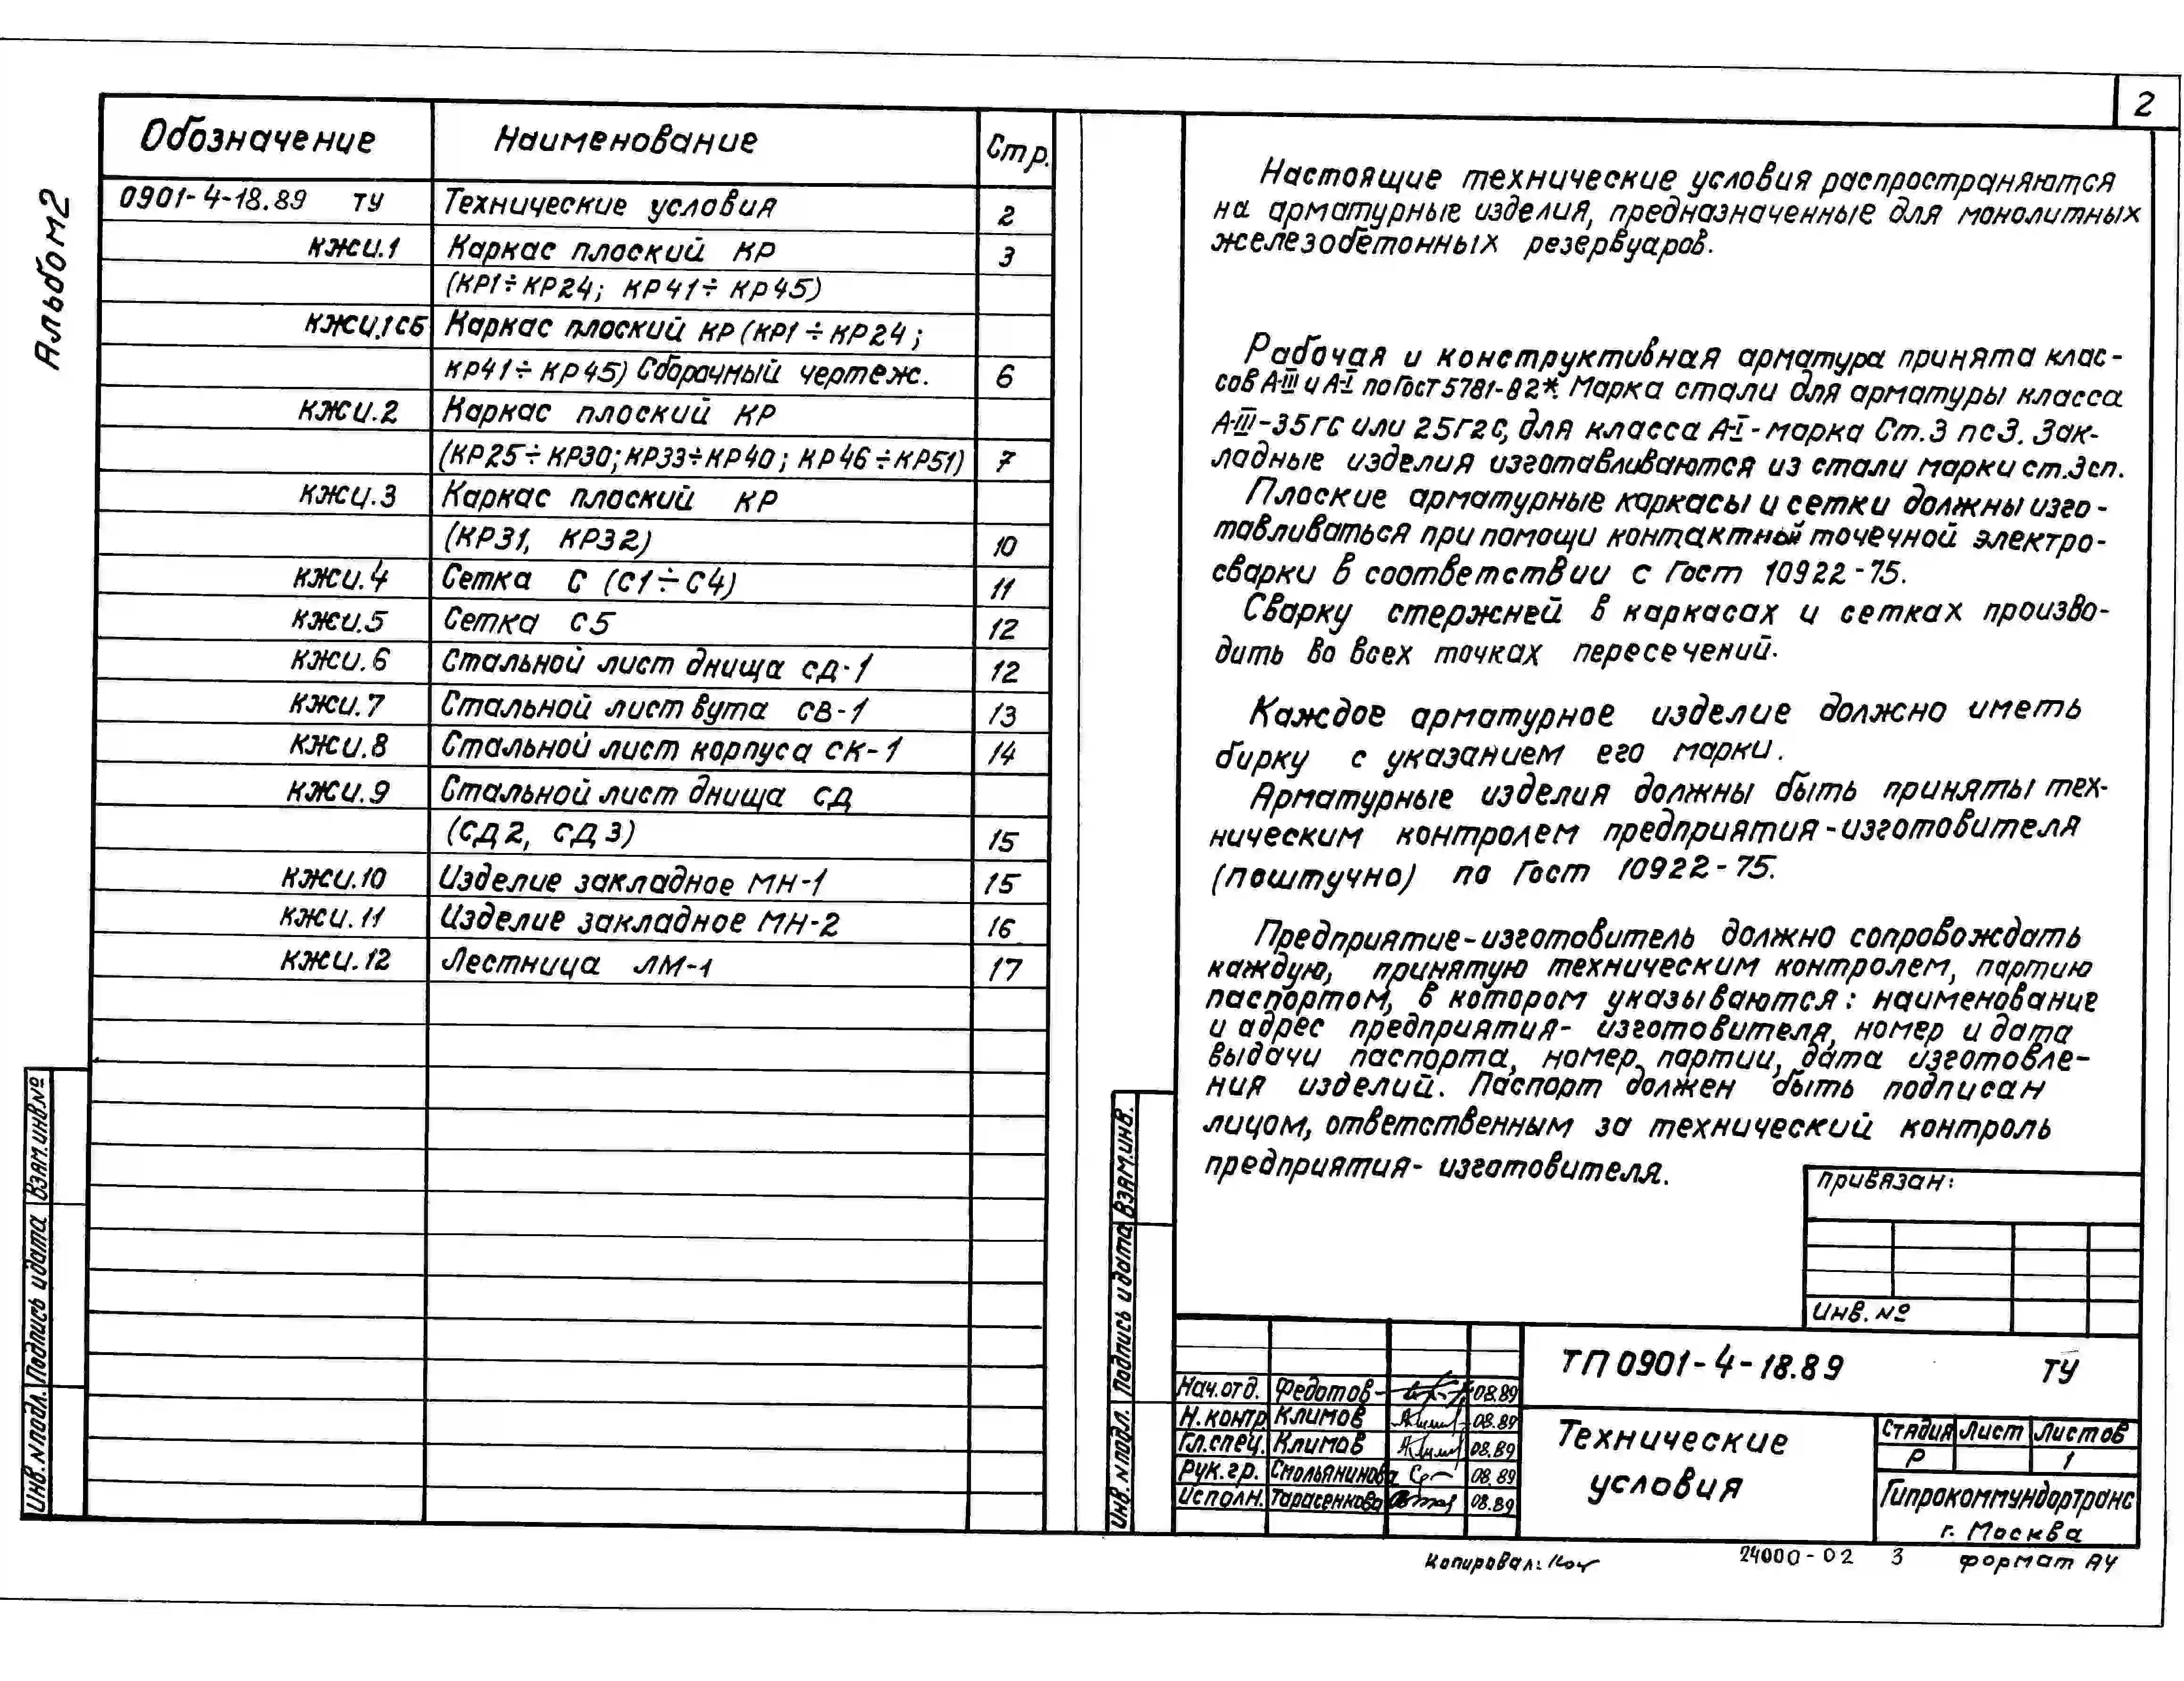 2
Альбом 2
Обозначение Наименование Стр.
0901-4-18.89 ТУ Технические условия 2
КЖИ.1 Каркас плоский КР 3
(КР1÷КР24; КР41÷КР45)
КЖИ.1СБ Каркас плоский КР (КР1÷КР24;
КР41÷КР45) Сборочный чертеж. 6
КЖИ.2 Каркас плоский КР
(КР25÷КР30; КР33÷КР40; КР46÷КР51) 7
КЖИ.3 Каркас плоский КР
(КР31, КР32) 10
КЖИ.4 Сетка С (С1÷С4) 11
КЖИ.5 Сетка С5 12
КЖИ.6 Стальной лист днища СД-1 12
КЖИ.7 Стальной лист вута СВ-1 13
КЖИ.8 Стальной лист корпуса СК-1 14
КЖИ.9 Стальной лист днища СД
(СД2, СД3) 15
КЖИ.10 Изделие закладное МН-1 15
КЖИ.11 Изделие закладное МН-2 16
КЖИ.12 Лестница ЛМ-1 17
Инв.№подл. Подпись и дата Взям.инв.№
Настоящие технические условия распространяются
на арматурные изделия, предназначенные для монолитных
железобетонных резервуаров.
Рабочая и конструктивная арматура принята клас-
сов А-III и А-I по Гост 5781-82*. Марка стали для арматуры класса
А-III-35ГС или 25Г2С, для класса А-I-марка Ст.3 пс3. Зак-
ладные изделия изготавливаются из стали марки ст.3сп.
Плоские арматурные каркасы и сетки должны изго-
тавливаться при помощи контактной точечной электро-
сварки в соответствии с Гост 10922-75.
Сварку стержней в каркасах и сетках произво-
дить во всех точках пересечений.
Каждое арматурное изделие должно иметь
бирку с указанием его марки.
Арматурные изделия должны быть приняты тех-
ническим контролем предприятия-изготовителя
(поштучно) по Гост 10922-75.
Предприятие-изготовитель должно сопровождать
каждую, принятую техническим контролем, партию
паспортом, в котором указываются: наименование
и адрес предприятия-изготовителя, номер и дата
выдачи паспорта, номер партии, дата изготовле-
ния изделий. Паспорт должен быть подписан
лицом, ответственным за технический контроль
предприятия-изготовителя.
Инв.№подл. Подпись и дата Взям.инв.
Привязан:
Инв.№
ТП 0901-4-18.89 ТУ
Нач.отд. Федотов 08.89
Н.контр. Климов 08.89
Гл.спец. Климов 08.89
Рук.гр. Смольянинова 08.89
Исполн. Тарасенкова 08.89
Технические
условия
Стадия Лист Листов
Р 1
Гипрокоммундортранс
г. Москва
Копировал:
24000-02 3 формат А4